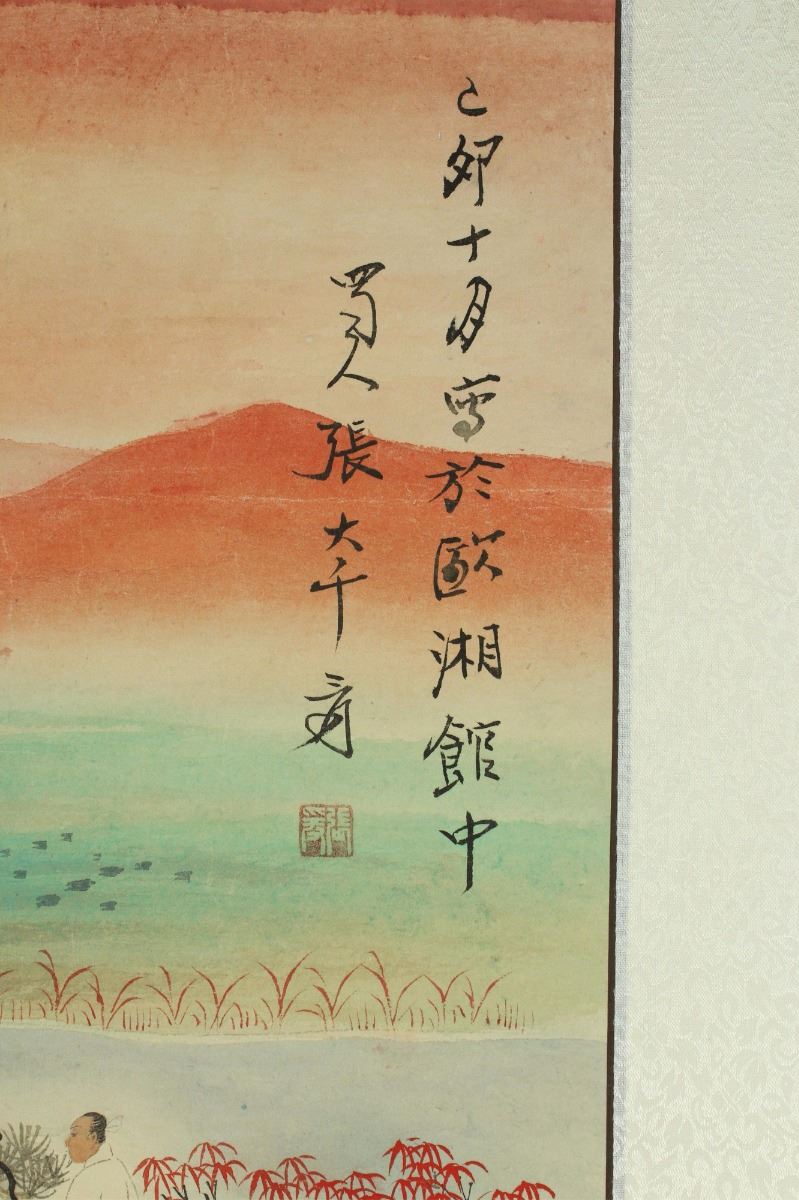 己卯十月寫於歐湘館中
蜀人張大千爰
張爰